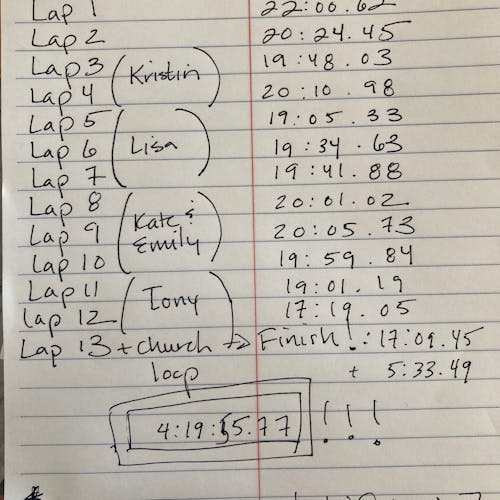 Lap 1 22:00.62
Lap 2 20:24.45
Lap 3 19:48.03
Kristin
Lap 4 20:10.98
Lap 5 19:05.33
Lap 6 Lisa 19:34.63
Lap 7 19:41.88
Lap 8 20:01.02
Lap 9 Kate & 20:05.73
Emily
Lap 10 19:59.84
Lap 11 19:01.19
Tony
Lap 12 17:19.05
Lap 13 + church → Finish!: 17:09.45
loop + 5:33.49
4:19:55.77 !!!